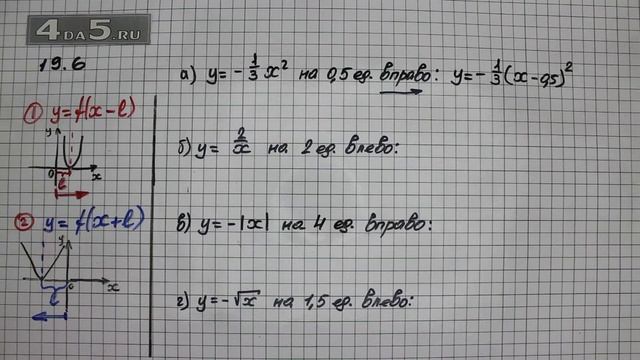 4DA5.RU
19.6
а) y = -1/3 x² на 0,5 ед. вправо: y = -1/3 (x - 0,5)²
① y = f(x - l)
y
0
l
x
б) y = 2/x на 2 ед. влево:
② y = f(x + l)
y
l
0
x
в) y = -|x| на 4 ед. вправо:
г) y = -√x на 1,5 ед. влево: